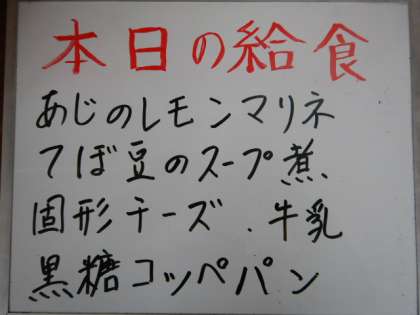 本日の給食
あじのレモンマリネ
てぼ豆のスープ煮
固形チーズ．牛乳
黒糖コッペパン